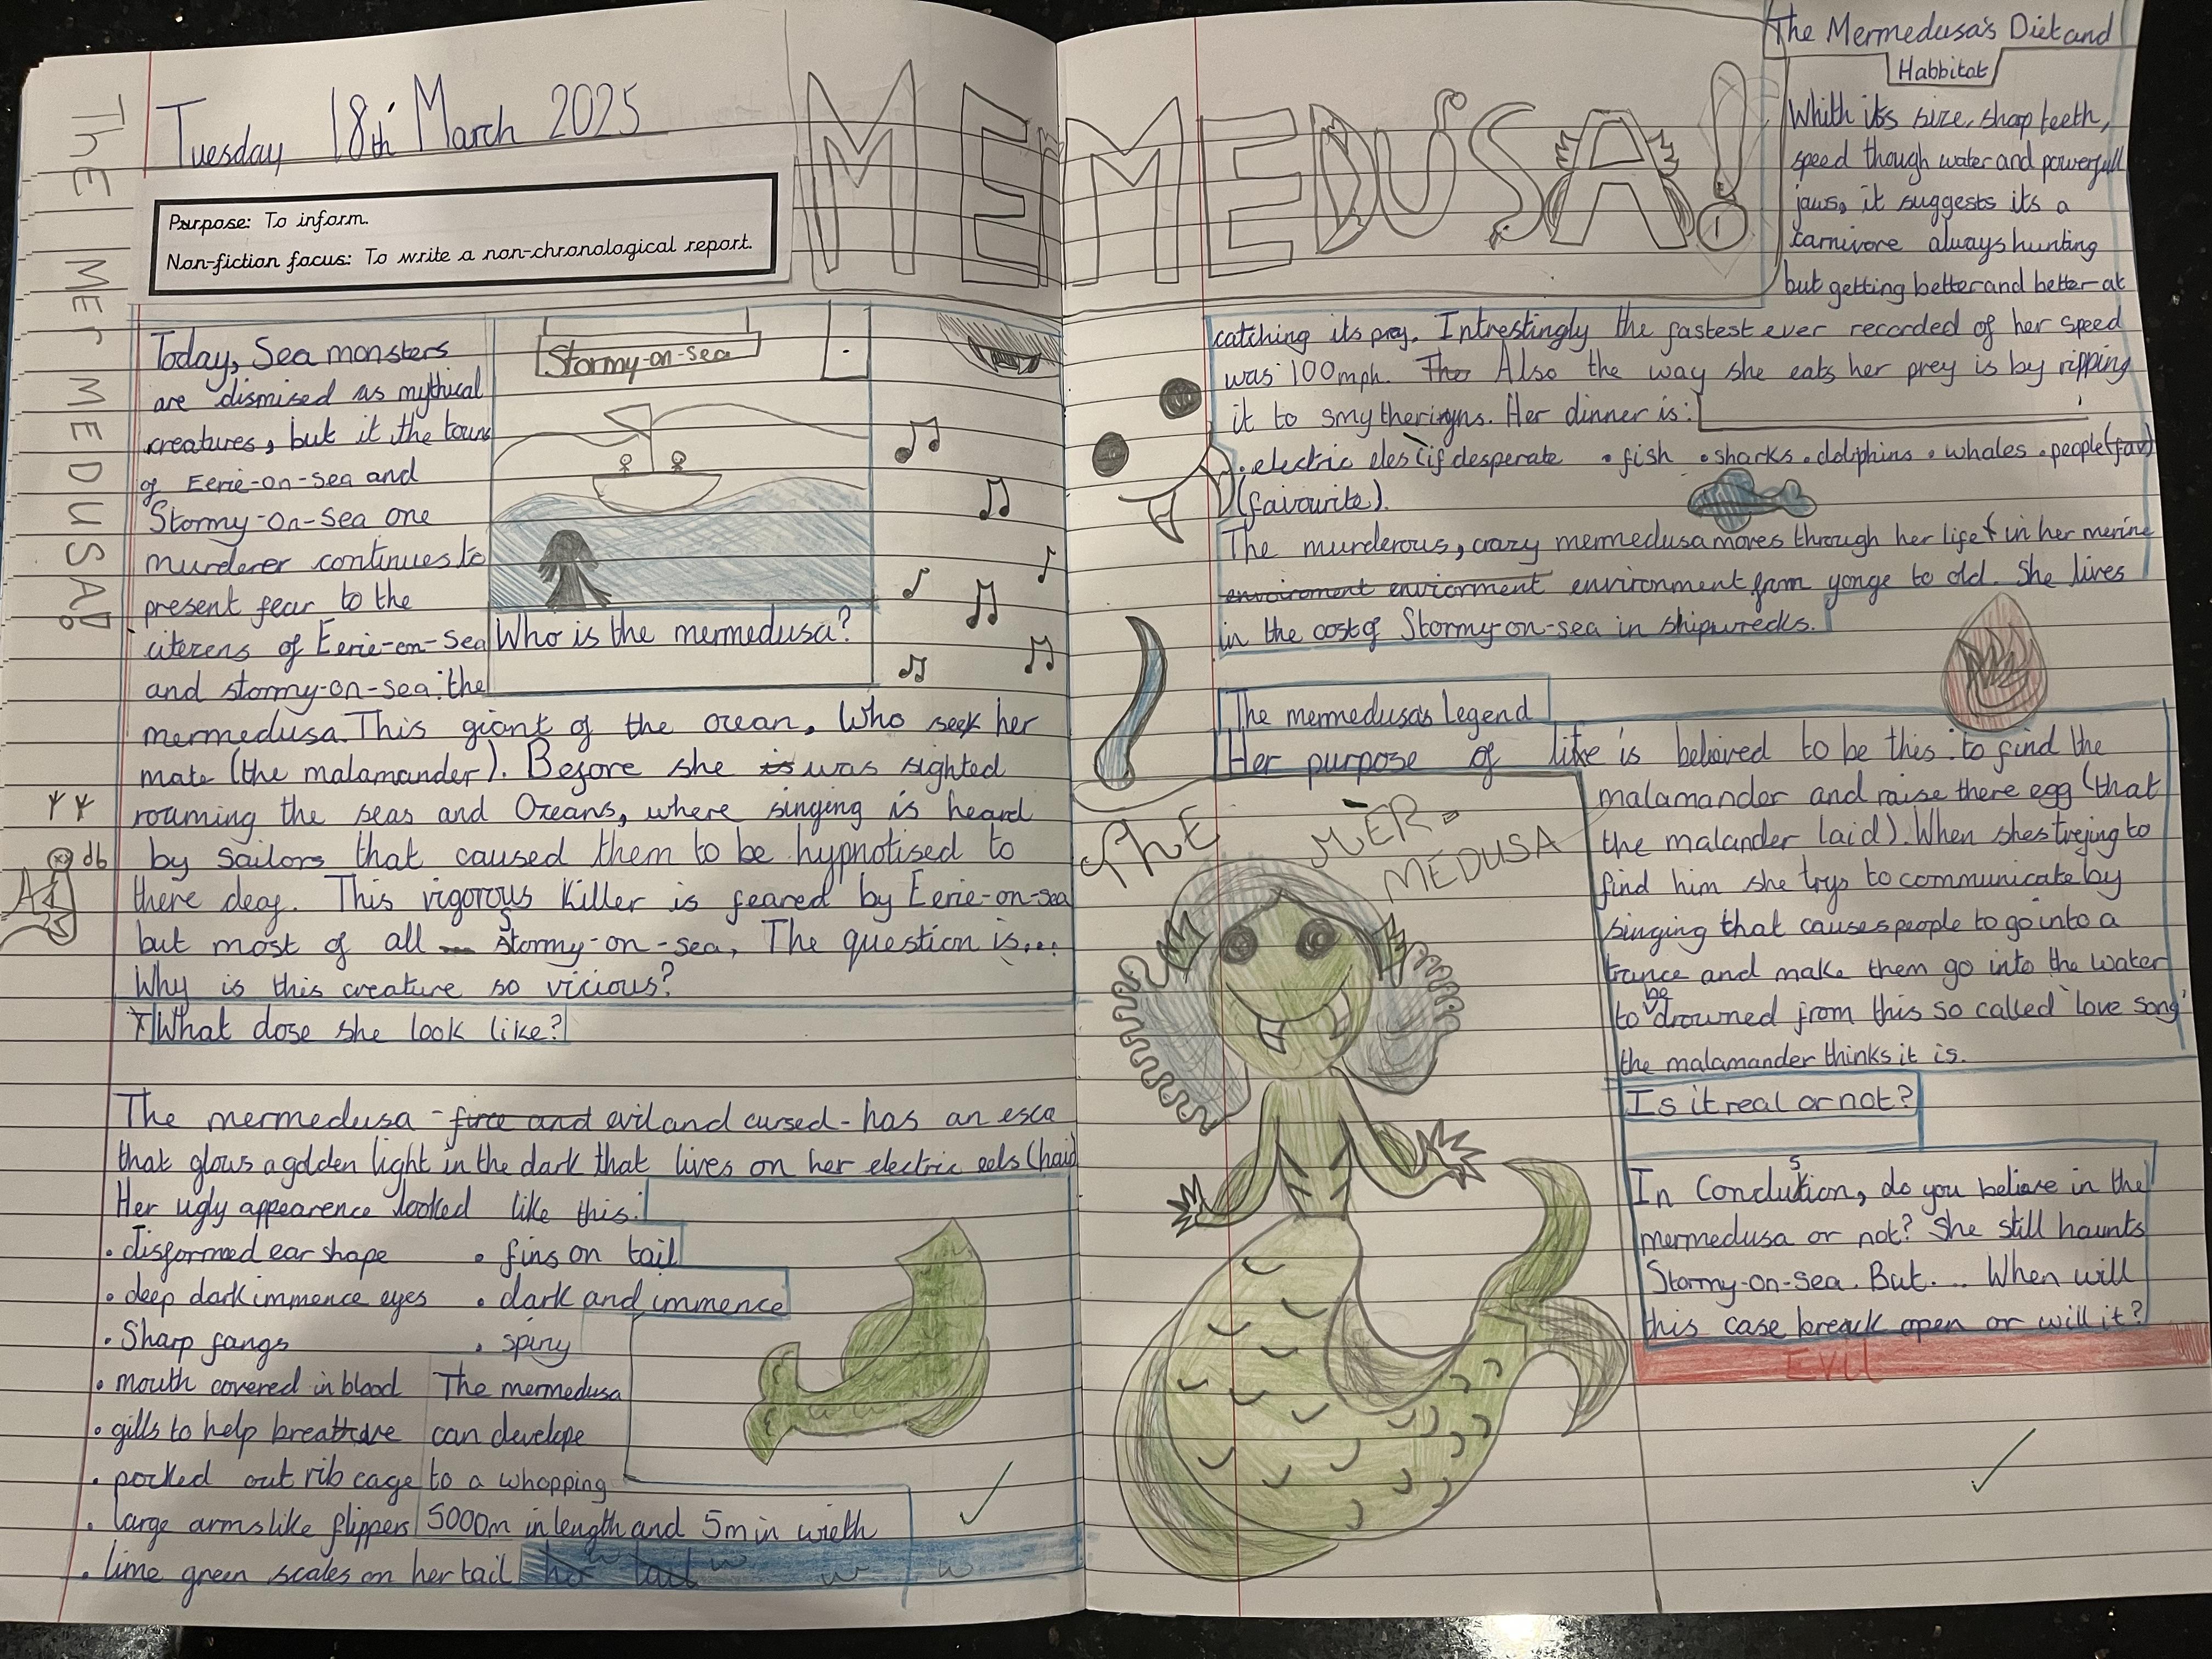 THE MERMEDUSA!
Tuesday 18th March 2025
Purpose: To inform.
Non-fiction focus: To write a non-chronological report.
MERMEDUSA!
Today, Sea monsters
are dismised as mythical
creatures, but it the town
of Eerie-on-sea and
Stormy-on-sea one
murderer continues to
present fear to the
citezens of Eerie-on-Sea
and stormy-on-sea: the
Stormy-on-sea
Who is the mermedusa?
mermedusa. This giant of the ocean, Who seek her
mate (the malamander). Before she is was sighted
roaming the seas and Oceans, where singing is heard
by Sailors that caused them to be hypnotised to
there deaf. This vigorous killer is feared by Eerie-on-sea
but most of all Stormy-on-sea, The question is...
Why is this creature so vicious?
What dose she look like?
The mermedusa - firce and evil and cursed - has an esca
that glows a golden light in the dark that lives on her electric eels (hair
Her ugly appearence looked like this:
• disformed ear shape
• deep dark immence eyes
• Sharp fangs
• mouth covered in blood
• gills to help breath
• pocked out rib cage
• large arms like flippers
• lime green scales on her tail her tail
• fins on tail
• dark and immence
• spiny
The mermedusa
can develope
to a whopping
5000m in length and 5m in wieth
The Mermedusa's Diet and
Habbitat
Whith its size, sharp teeth,
speed though water and powerfull
jaws, it suggests its a
carnivore always hunting
but getting better and better at
catching its prey. Intrestingly the fastest ever recorded of her speed
was 100mph. The Also the way she eats her prey is by ripping
it to smytheriyns. Her dinner is:
• electric eles (if desperate • fish • sharks • dolphins • whales • people (fav)
(favourite).
The murderous, crazy mermedusa moves through her life in her merine
envoiroment enviorment environment from yonge to old. She lives
in the cost of Stormy-on-sea in shipwrecks.
The mermedusa's Legend
Her purpose of life is believed to be this: to find the
malamander and raise there egg (that
the malander laid). When shes treying to
find him she trys to communicate by
singing that causes people to go into a
trance and make them go into the water
to be drowned from this so called 'love song'
the malamander thinks it is.
THE MER-
MEDUSA
Is it real or not?
In Conclusion, do you believe in the
mermedusa or not? She still haunts
Stormy-on-sea. But.... When will
this case break open or will it?
EVIL